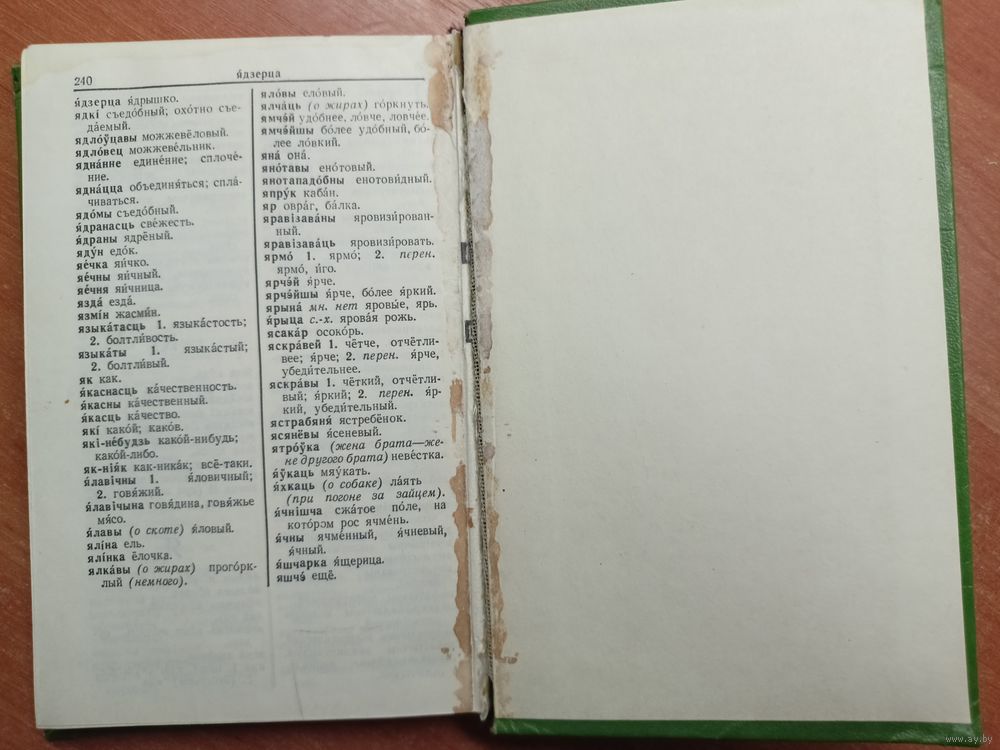 240
я́дзерца
я́дзерца я́дрышко.
ядкі́ съедо́бный; охо́тно съе-
да́емый.
ядло́ўцавы можжеве́ловый.
ядло́вец можжеве́льник.
ядна́нне едине́ние; сплоче́-
ние.
ядна́цца объединя́ться; спла́-
чиваться.
ядо́мы съедо́бный.
я́дранасць све́жесть.
я́драны ядрёный.
яду́н едо́к.
яе́чка яи́чко.
яе́чны яи́чный.
яе́чня яи́чница.
язда́ езда́.
язмі́н жасми́н.
языка́тасць 1. языка́стость;
2. болтли́вость.
языка́ты 1. языка́стый;
2. болтли́вый.
як как.
я́каснасць ка́чественность.
я́касны ка́чественный.
я́касць ка́чество.
які́ како́й; како́в.
які́-не́будзь како́й-нибудь;
како́й-либо.
як-нія́к как-ника́к; всё-таки.
я́лавічны 1. я́ловичный;
2. говя́жий.
я́лавічына говя́дина, говя́жье
мя́со.
я́лавы (о скоте) я́ловый.
ялі́на ель.
ялі́нка ёлочка.
ялка́вы (о жирах) прого́рк-
лый (немного).
яло́вы ело́вый.
ялча́ць (о жирах) го́ркнуть.
ямчэ́й удо́бнее, ло́вче, ловче́е.
ямчэ́йшы бо́лее удо́бный, бо́-
лее ло́вкий.
яна́ она́.
яно́тавы ено́товый.
янотападо́бны енотови́дный.
япру́к каба́н.
яр овра́г, ба́лка.
яравізава́ны яровизи́рован-
ный.
яравізава́ць яровизи́ровать.
ярмо́ 1. ярмо́; 2. перен.
ярмо́, и́го.
ярчэ́й я́рче.
ярчэ́йшы я́рче, бо́лее я́ркий.
ярына́ мн. нет яровы́е, ярь.
я́рыца с.-х. ярова́я рожь.
ясака́р осоко́рь.
яскра́вей 1. чётче, отчётли-
вее; я́рче; 2. перен. я́рче,
убеди́тельнее.
яскра́вы 1. чёткий, отчётли-
вый; я́ркий; 2. перен. я́р-
кий, убеди́тельный.
ястрабяня́ ястребёнок.
ясянёвы я́сеневый.
ятро́ўка (жена брата—же-
не другого брата) неве́стка.
я́ўкаць мяу́кать.
я́хкаць (о собаке) ла́ять
(при погоне за зайцем).
я́чнішча сжа́тое по́ле, на
кото́ром рос ячме́нь.
я́чны ячме́нный, я́чневый,
я́чный.
я́шчарка я́щерица.
яшчэ́ ещё.
www.ay.by